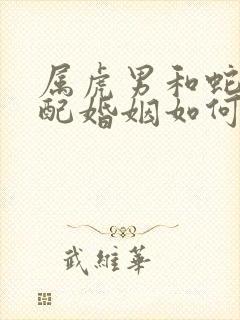 属虎男和蛇
配婚姻如何
武維華